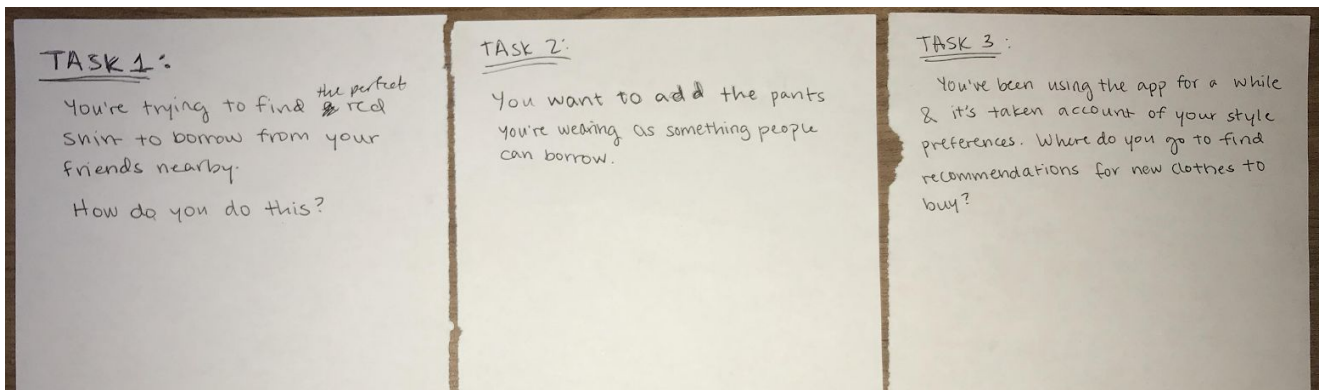 TASK 1:
You're trying to find the perfect red
shirt to borrow from your
friends nearby.
How do you do this?
TASK 2:
You want to add the pants
you're wearing as something people
can borrow.
TASK 3:
You've been using the app for a while
& it's taken account of your style
preferences. Where do you go to find
recommendations for new clothes to
buy?